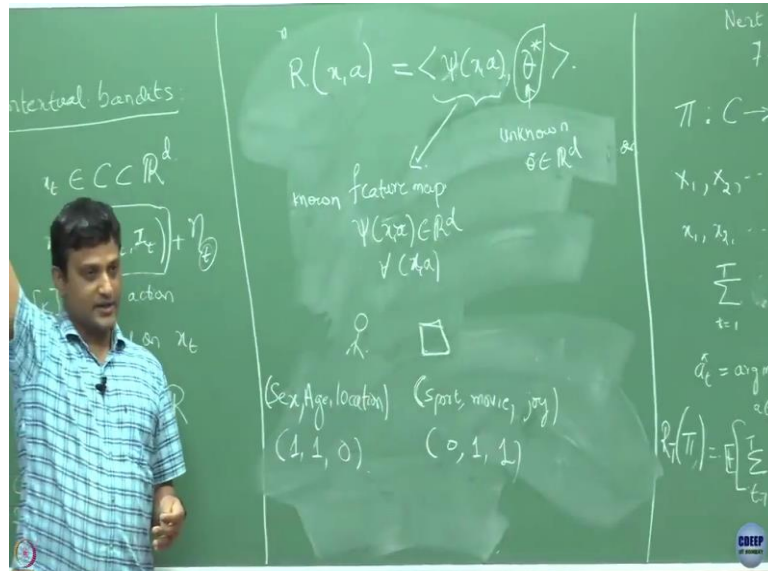 ntextual bandits:
x_t ∈ C ⊂ ℝ^d
, I_t) + η_t
action
on x_t
R
R(x,a) = <ψ(x,a), θ*>.
unknown
θ ∈ ℝ^d
known feature map
ψ(x,a) ∈ ℝ^d
∀ (x,a)
(Sex, Age, location) (sport, movie, joy)
(1, 1, 0) (0, 1, 1)
Next
7
π : C →
x_1, x_2, ...
x_1, x_2, ...
T
Σ
t=1
a*_t = argm
R_T(π) = E[ Σ
CDEEP
IIT BOMBAY